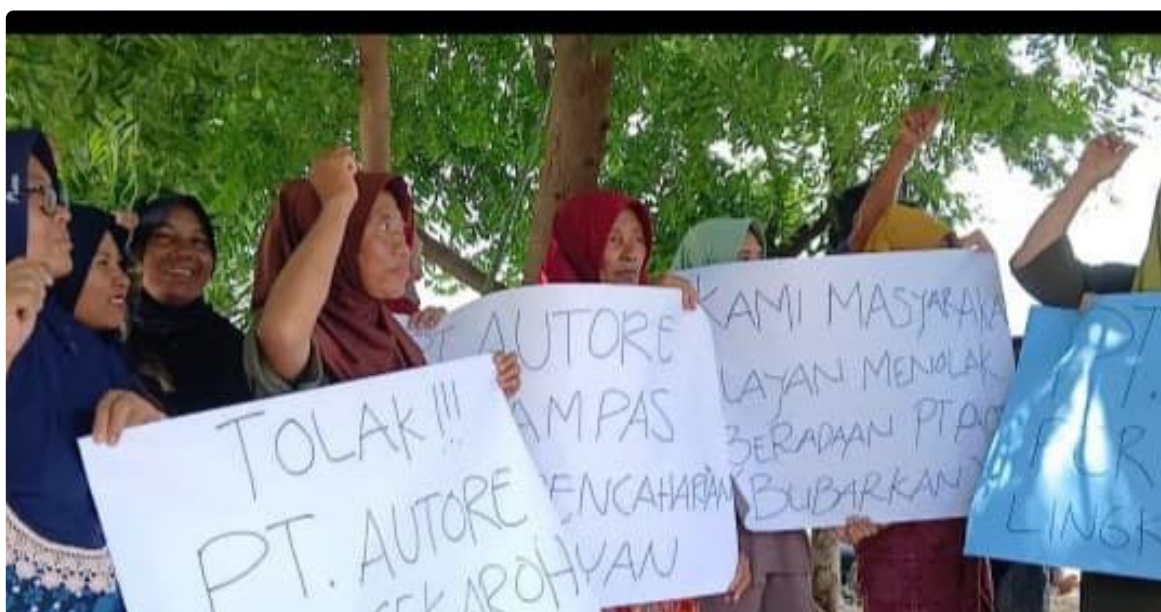 TOLAK!!!
PT. AUTORE
SEKAROHYAN
AUTORE
AMPAS
PENCAHARIAN
KAMI MASYARAKA
LAYAN MENOLAK
BERADAAN PT AUT
BUBARKAN
PT.
PER
LINGK